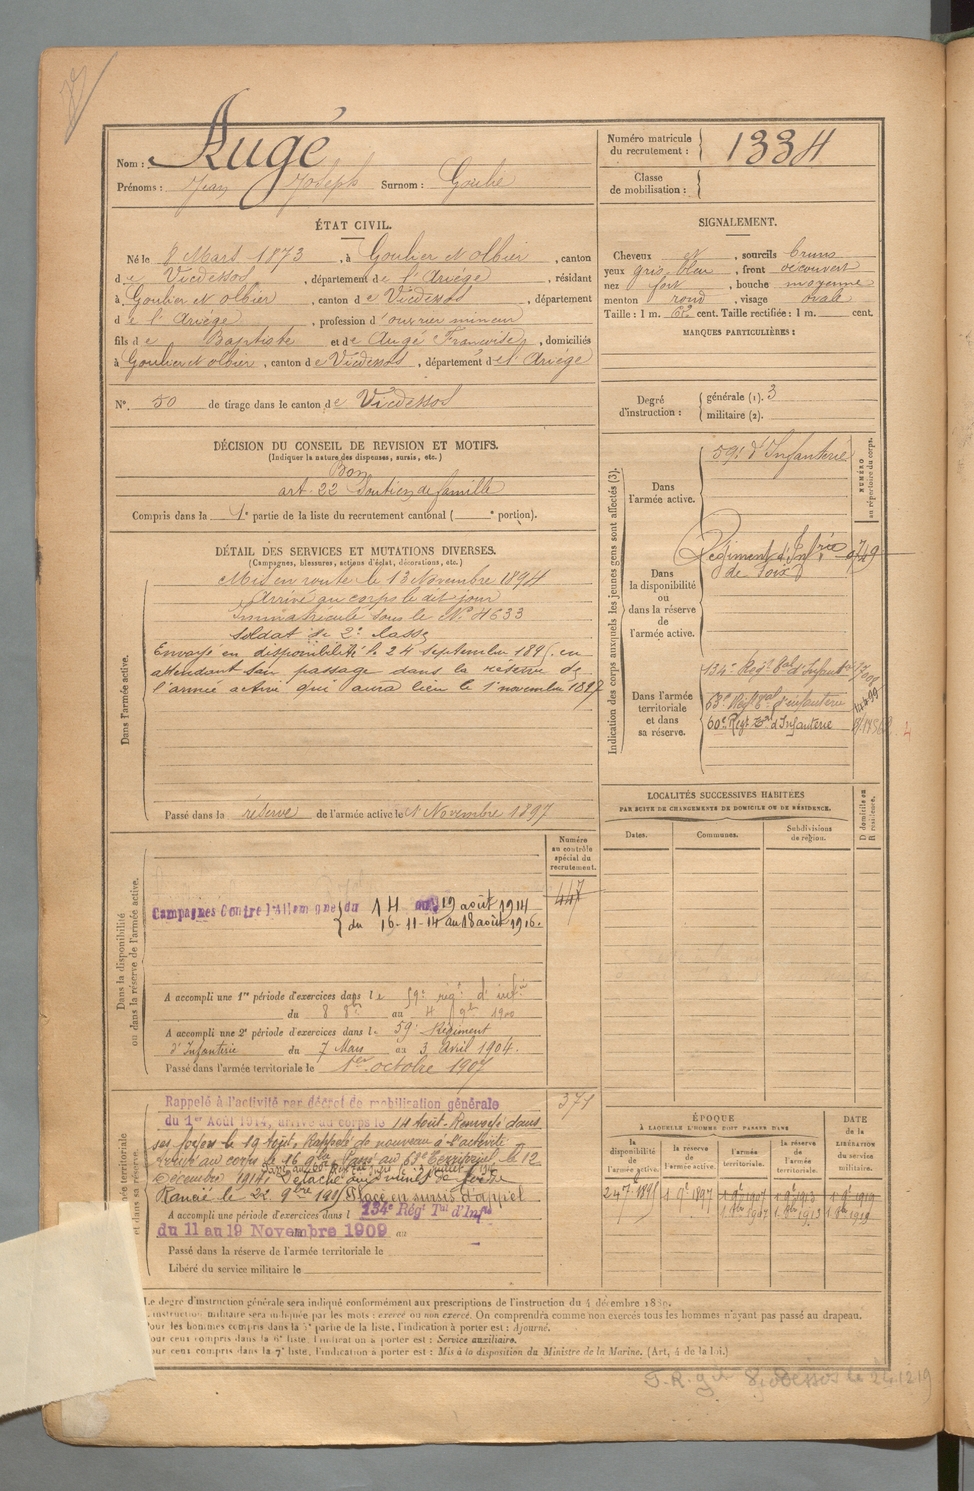 Nom : Augé
Prénoms : Jean Joseph Surnom : Goube
Numéro matricule du recrutement : 1334
Classe de mobilisation :
ÉTAT CIVIL.
Né le 8 Mars 1873, à Goulier et Olbier, canton
de Vicdessos, département de l'Ariége, résidant
à Goulier et Olbier, canton de Vicdessos, département
de l'Ariége, profession d'ouvrier mineur
fils de Baptiste et de Augé Françoise, domiciliés
à Goulier et Olbier, canton de Vicdessos, département de l'Ariége
N° 50 de tirage dans le canton de Vicdessos
SIGNALEMENT.
Cheveux et , sourcils bruns
yeux gris bleu , front découvert
nez fort , bouche moyenne
menton rond , visage ovale
Taille : 1 m. cent. Taille rectifiée : 1 m. cent.
MARQUES PARTICULIÈRES :
Degré d'instruction : générale (1). 3
militaire (2).
DÉCISION DU CONSEIL DE REVISION ET MOTIFS.
(Indiquer la nature des dispenses, sursis, etc.)
Bon
art. 22 Soutien de famille
Compris dans la 1e partie de la liste du recrutement cantonal ( e portion).
DÉTAIL DES SERVICES ET MUTATIONS DIVERSES.
(Campagnes, blessures, actions d'éclat, décorations, etc.)
Dans l'armée active.
Mis en route le 13 Novembre 1894
Arrivé au corps le dit jour
Immatriculé sous le N° 4633
soldat de 2e classe
Envoyé en disponibilité le 24 septembre 1895 en
attendant son passage dans la réserve de
l'armée active qui aura lieu le 1 novembre 1897
Passé dans la réserve de l'armée active le 1 Novembre 1897
Indication des corps auxquels les jeunes gens sont affectés (3).
NUMÉRO au répertoire du corps.
Dans l'armée active.
59e d'Infanterie
Dans la disponibilité ou dans la réserve de l'armée active.
Régiment d'Infrie
de Foix
Dans l'armée territoriale et dans sa réserve.
134e Regt Tal d'Infanterie
63e Regt Tal d'infanterie
60e Regt Tal d'Infanterie
LOCALITÉS SUCCESSIVES HABITÉES
PAR SUITE DE CHANGEMENTS DE DOMICILE OU DE RÉSIDENCE.
Dates. Communes. Subdivisions de région. D domicile ou R résidence.
Dans la disponibilité ou dans la réserve de l'armée active.
Numéro au contrôle spécial du recrutement.
447
Campagnes Contre l'Allemagne du 14 au 19 août 1914
du 16-11-14 au 18 août 1916.
A accompli une 1re période d'exercices dans le 59e régt d'infie
du 8 8bre au 4 9bre 1900
A accompli une 2e période d'exercices dans le 59e Régiment
d'Infanterie du 7 Mars au 3 Avril 1904.
Passé dans l'armée territoriale le 1er octobre 1907
371
Rappelé à l'activité par décret de mobilisation générale
du 1er Août 1914, arrivé au corps le 14 Août. Renvoyé dans
ses foyers le 19 Août. Rappelé de nouveau à l'activité
arrivé au corps le 16 9bre Passé au 63e Territorial le 12
Décembre 1914.
le 22 9bre Placé en sursis d'appel
A accompli une période d'exercices dans l 134e Régt Tal d'Infie
du 11 au 19 Novembre 1909 au
Passé dans la réserve de l'armée territoriale le
Libéré du service militaire le
ÉPOQUE
À LAQUELLE L'HOMME DOIT PASSER DANS
la disponibilité de l'armée active. la réserve de l'armée active. l'armée territoriale. la réserve de l'armée territoriale.
DATE de la LIBÉRATION du service militaire.
24 7bre 1895 1 9e 1897 1 9e 1907 1 9e 1913 1 9e 1919
Le degré d'instruction générale sera indiqué conformément aux prescriptions de l'instruction du 4 décembre 1889.
instruction militaire sera indiquée par les mots : exercé ou non exercé. On comprendra comme non exercés tous les hommes n'ayant pas passé au drapeau.
Pour les hommes compris dans la 5e partie de la liste, l'indication à porter est : Ajourné.
Pour ceux compris dans la 6e liste, l'indication à porter est : Service auxiliaire.
Pour ceux compris dans la 7e liste, l'indication à porter est : Mis à la disposition du Ministre de la Marine. (Art. 4 de la loi.)